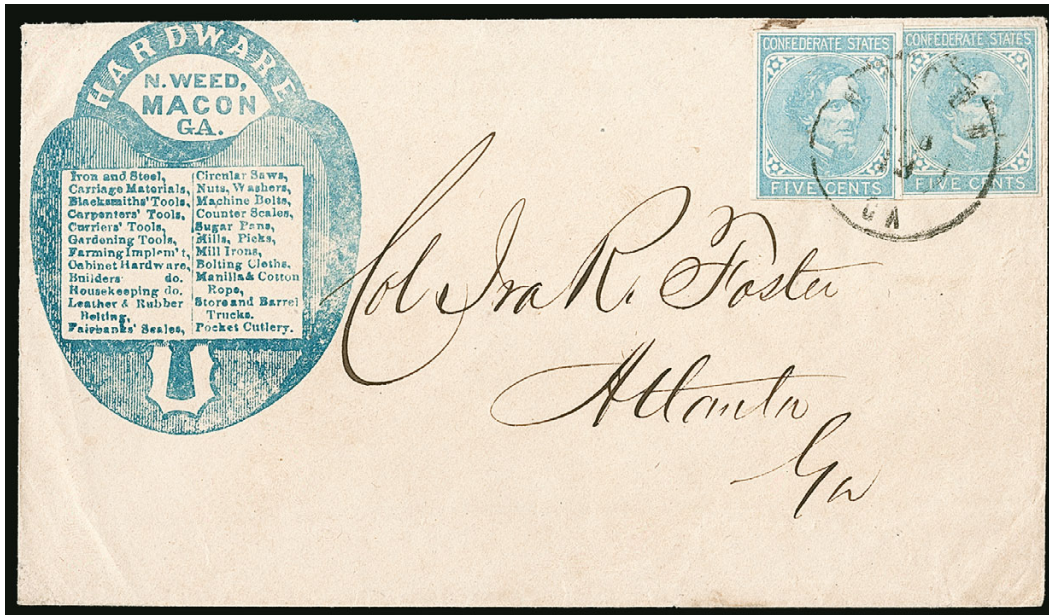 HARDWARE
N. WEED,
MACON
GA.
Iron and Steel,
Carriage Materials,
Blacksmiths' Tools,
Carpenters' Tools,
Curriers' Tools,
Gardening Tools,
Farming Implem't,
Cabinet Hardware,
Builders' do.
Housekeeping do.
Leather & Rubber
Belting,
Fairbanks' Scales,
Circular Saws,
Nuts, Washers,
Machine Bolts,
Counter Scales,
Sugar Pans,
Mills, Picks,
Mill Irons,
Bolting Cloths,
Manilla & Cotton
Rope,
Store and Barrel
Trucks.
Pocket Cutlery.
CONFEDERATE STATES
FIVE CENTS
CONFEDERATE STATES
FIVE CENTS
MACON
GA
Col Ira R. Foster
Atlanta
Ga